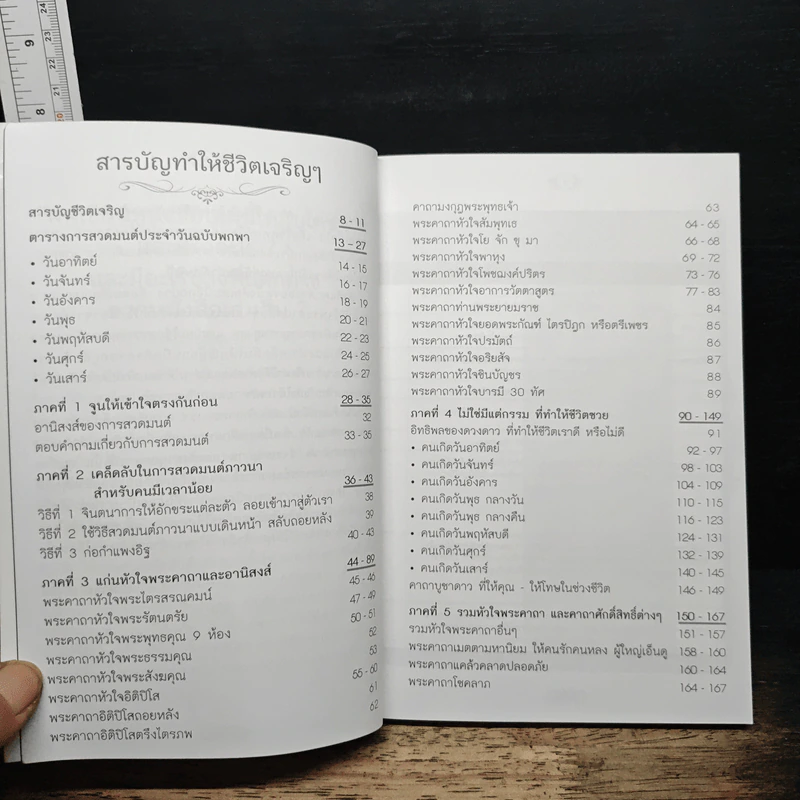 สารบัญทำให้ชีวิตเจริญๆ
สารบัญชีวิตเจริญ 8 - 11
ตารางการสวดมนต์ประจำวันฉบับพกพา 13 - 27
• วันอาทิตย์ 14 - 15
• วันจันทร์ 16 - 17
• วันอังคาร 18 - 19
• วันพุธ 20 - 21
• วันพฤหัสบดี 22 - 23
• วันศุกร์ 24 - 25
• วันเสาร์ 26 - 27
ภาคที่ 1 จูนให้เข้าใจตรงกันก่อน 28 - 35
อานิสงส์ของการสวดมนต์ 32
ตอบคำถามเกี่ยวกับการสวดมนต์ 33 - 35
ภาคที่ 2 เคล็ดลับในการสวดมนต์ภาวนา
สำหรับคนมีเวลาน้อย 36 - 43
วิธีที่ 1 จินตนาการให้อักขระแต่ละตัว ลอยเข้ามาสู่ตัวเรา 38
วิธีที่ 2 ใช้วิธีสวดมนต์ภาวนาแบบเดินหน้า สลับถอยหลัง 39
วิธีที่ 3 ก่อกำแพงอิฐ 40 - 43
ภาคที่ 3 แก่นหัวใจพระคาถาและอานิสงส์ 44 - 89
พระคาถาหัวใจพระไตรสรณคมน์ 45 - 46
พระคาถาหัวใจพระรัตนตรัย 47 - 49
พระคาถาหัวใจพระพุทธคุณ 9 ห้อง 50 - 51
พระคาถาหัวใจพระธรรมคุณ 52
พระคาถาหัวใจพระสังฆคุณ 53
พระคาถาหัวใจอิติปิโส 55 - 60
พระคาถาอิติปิโสถอยหลัง 61
พระคาถาอิติปิโสตรึงไตรภพ 62
คาถามงกุฎพระพุทธเจ้า 63
พระคาถาหัวใจสัมพุทเธ 64 - 65
พระคาถาหัวใจโย จัก ขุ มา 66 - 68
พระคาถาหัวใจพาหุง 69 - 72
พระคาถาหัวใจโพชฌงค์ปริตร 73 - 76
พระคาถาหัวใจอาการวัตตาสูตร 77 - 83
พระคาถาท่านพระยายมราช 84
พระคาถาหัวใจยอดพระกัณฑ์ ไตรปิฎก หรือตรีเพชร 85
พระคาถาหัวใจปรมัตถ์ 86
พระคาถาหัวใจอริยสัจ 87
พระคาถาหัวใจชินบัญชร 88
พระคาถาหัวใจบารมี 30 ทัศ 89
ภาคที่ 4 ไม่ใช่มีแต่กรรม ที่ทำให้ชีวิตซวย 90 - 149
อิทธิพลของดวงดาว ที่ทำให้ชีวิตเราดี หรือไม่ดี 91
• คนเกิดวันอาทิตย์ 92 - 97
• คนเกิดวันจันทร์ 98 - 103
• คนเกิดวันอังคาร 104 - 109
• คนเกิดวันพุธ กลางวัน 110 - 115
• คนเกิดวันพุธ กลางคืน 116 - 123
• คนเกิดวันพฤหัสบดี 124 - 131
• คนเกิดวันศุกร์ 132 - 139
• คนเกิดวันเสาร์ 140 - 145
คาถาบูชาดาว ที่ให้คุณ - ให้โทษในช่วงชีวิต 146 - 149
ภาคที่ 5 รวมหัวใจพระคาถา และคาถาศักดิ์สิทธิ์ต่างๆ 150 - 167
รวมหัวใจพระคาถาอื่นๆ 151 - 157
พระคาถาเมตตามหานิยม ให้คนรักคนหลง ผู้ใหญ่เอ็นดู 158 - 160
พระคาถาแคล้วคลาดปลอดภัย 160 - 164
พระคาถาโชคลาภ 164 - 167